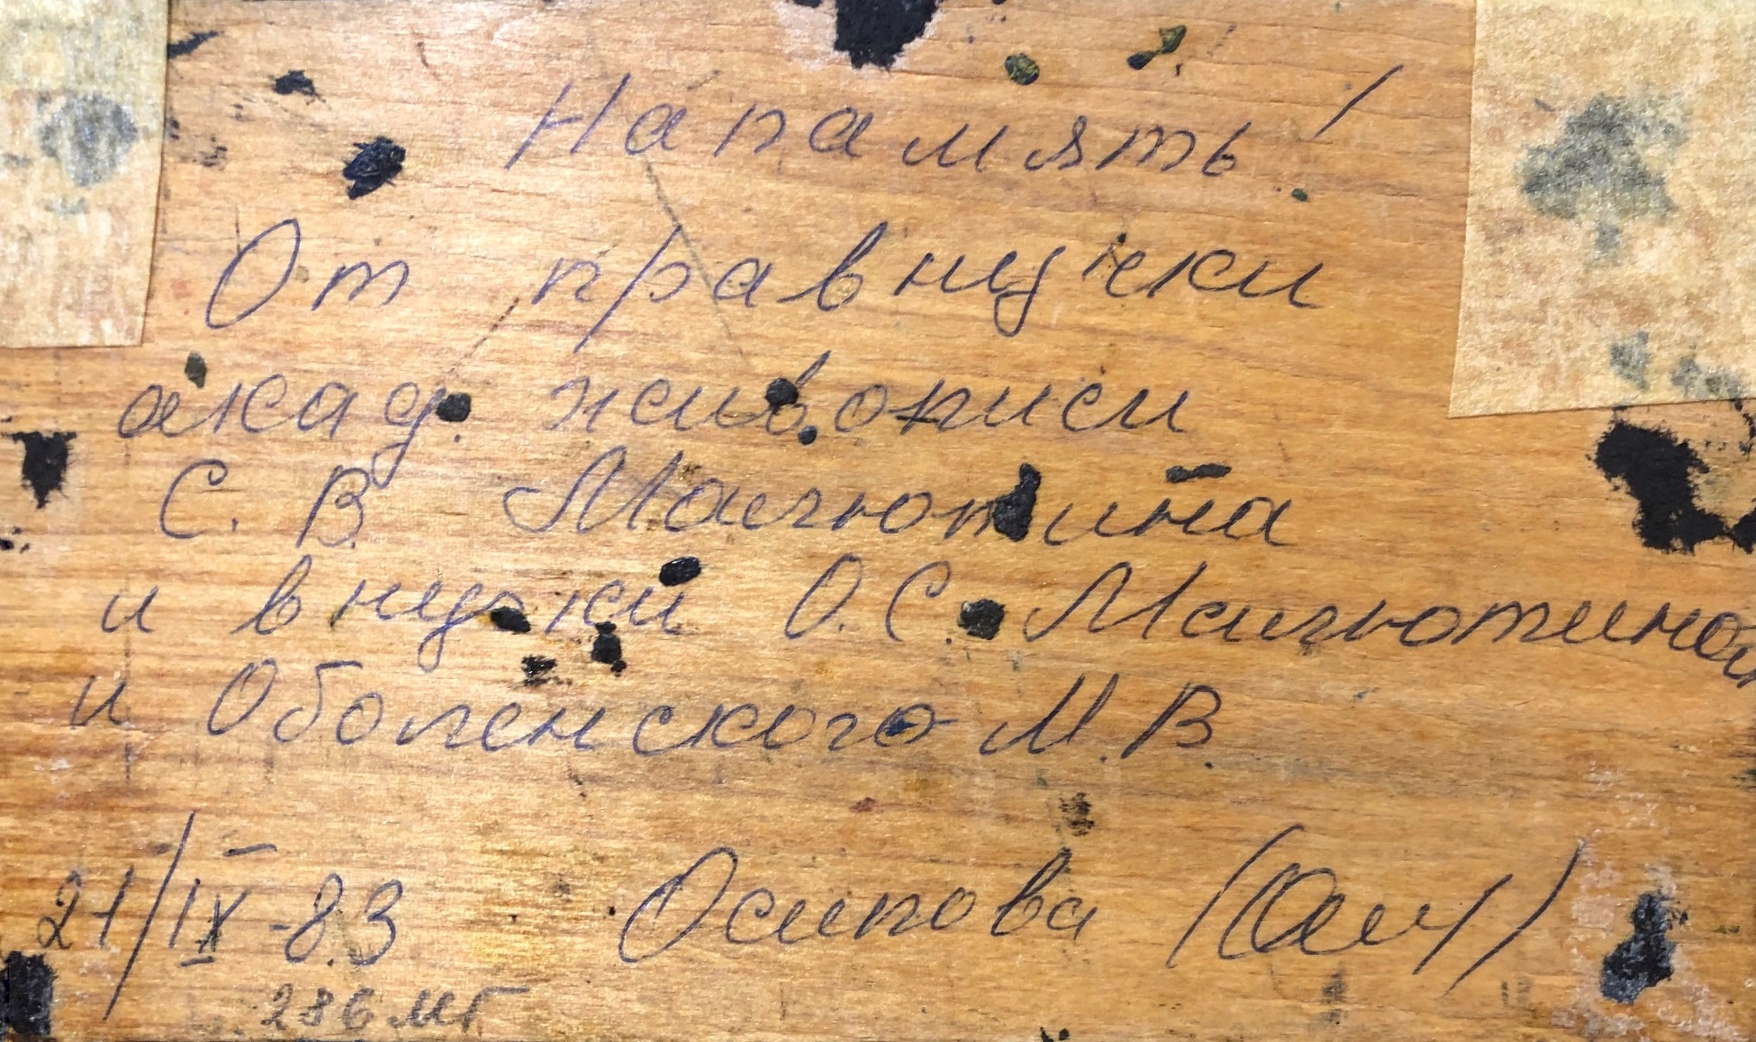 На память!
От правнучки
акад. живописи
С. В. Малютина
и внучки О. С. Малютиной
и Оболенского М. В.
21/IX-83 Осипова
286 мг